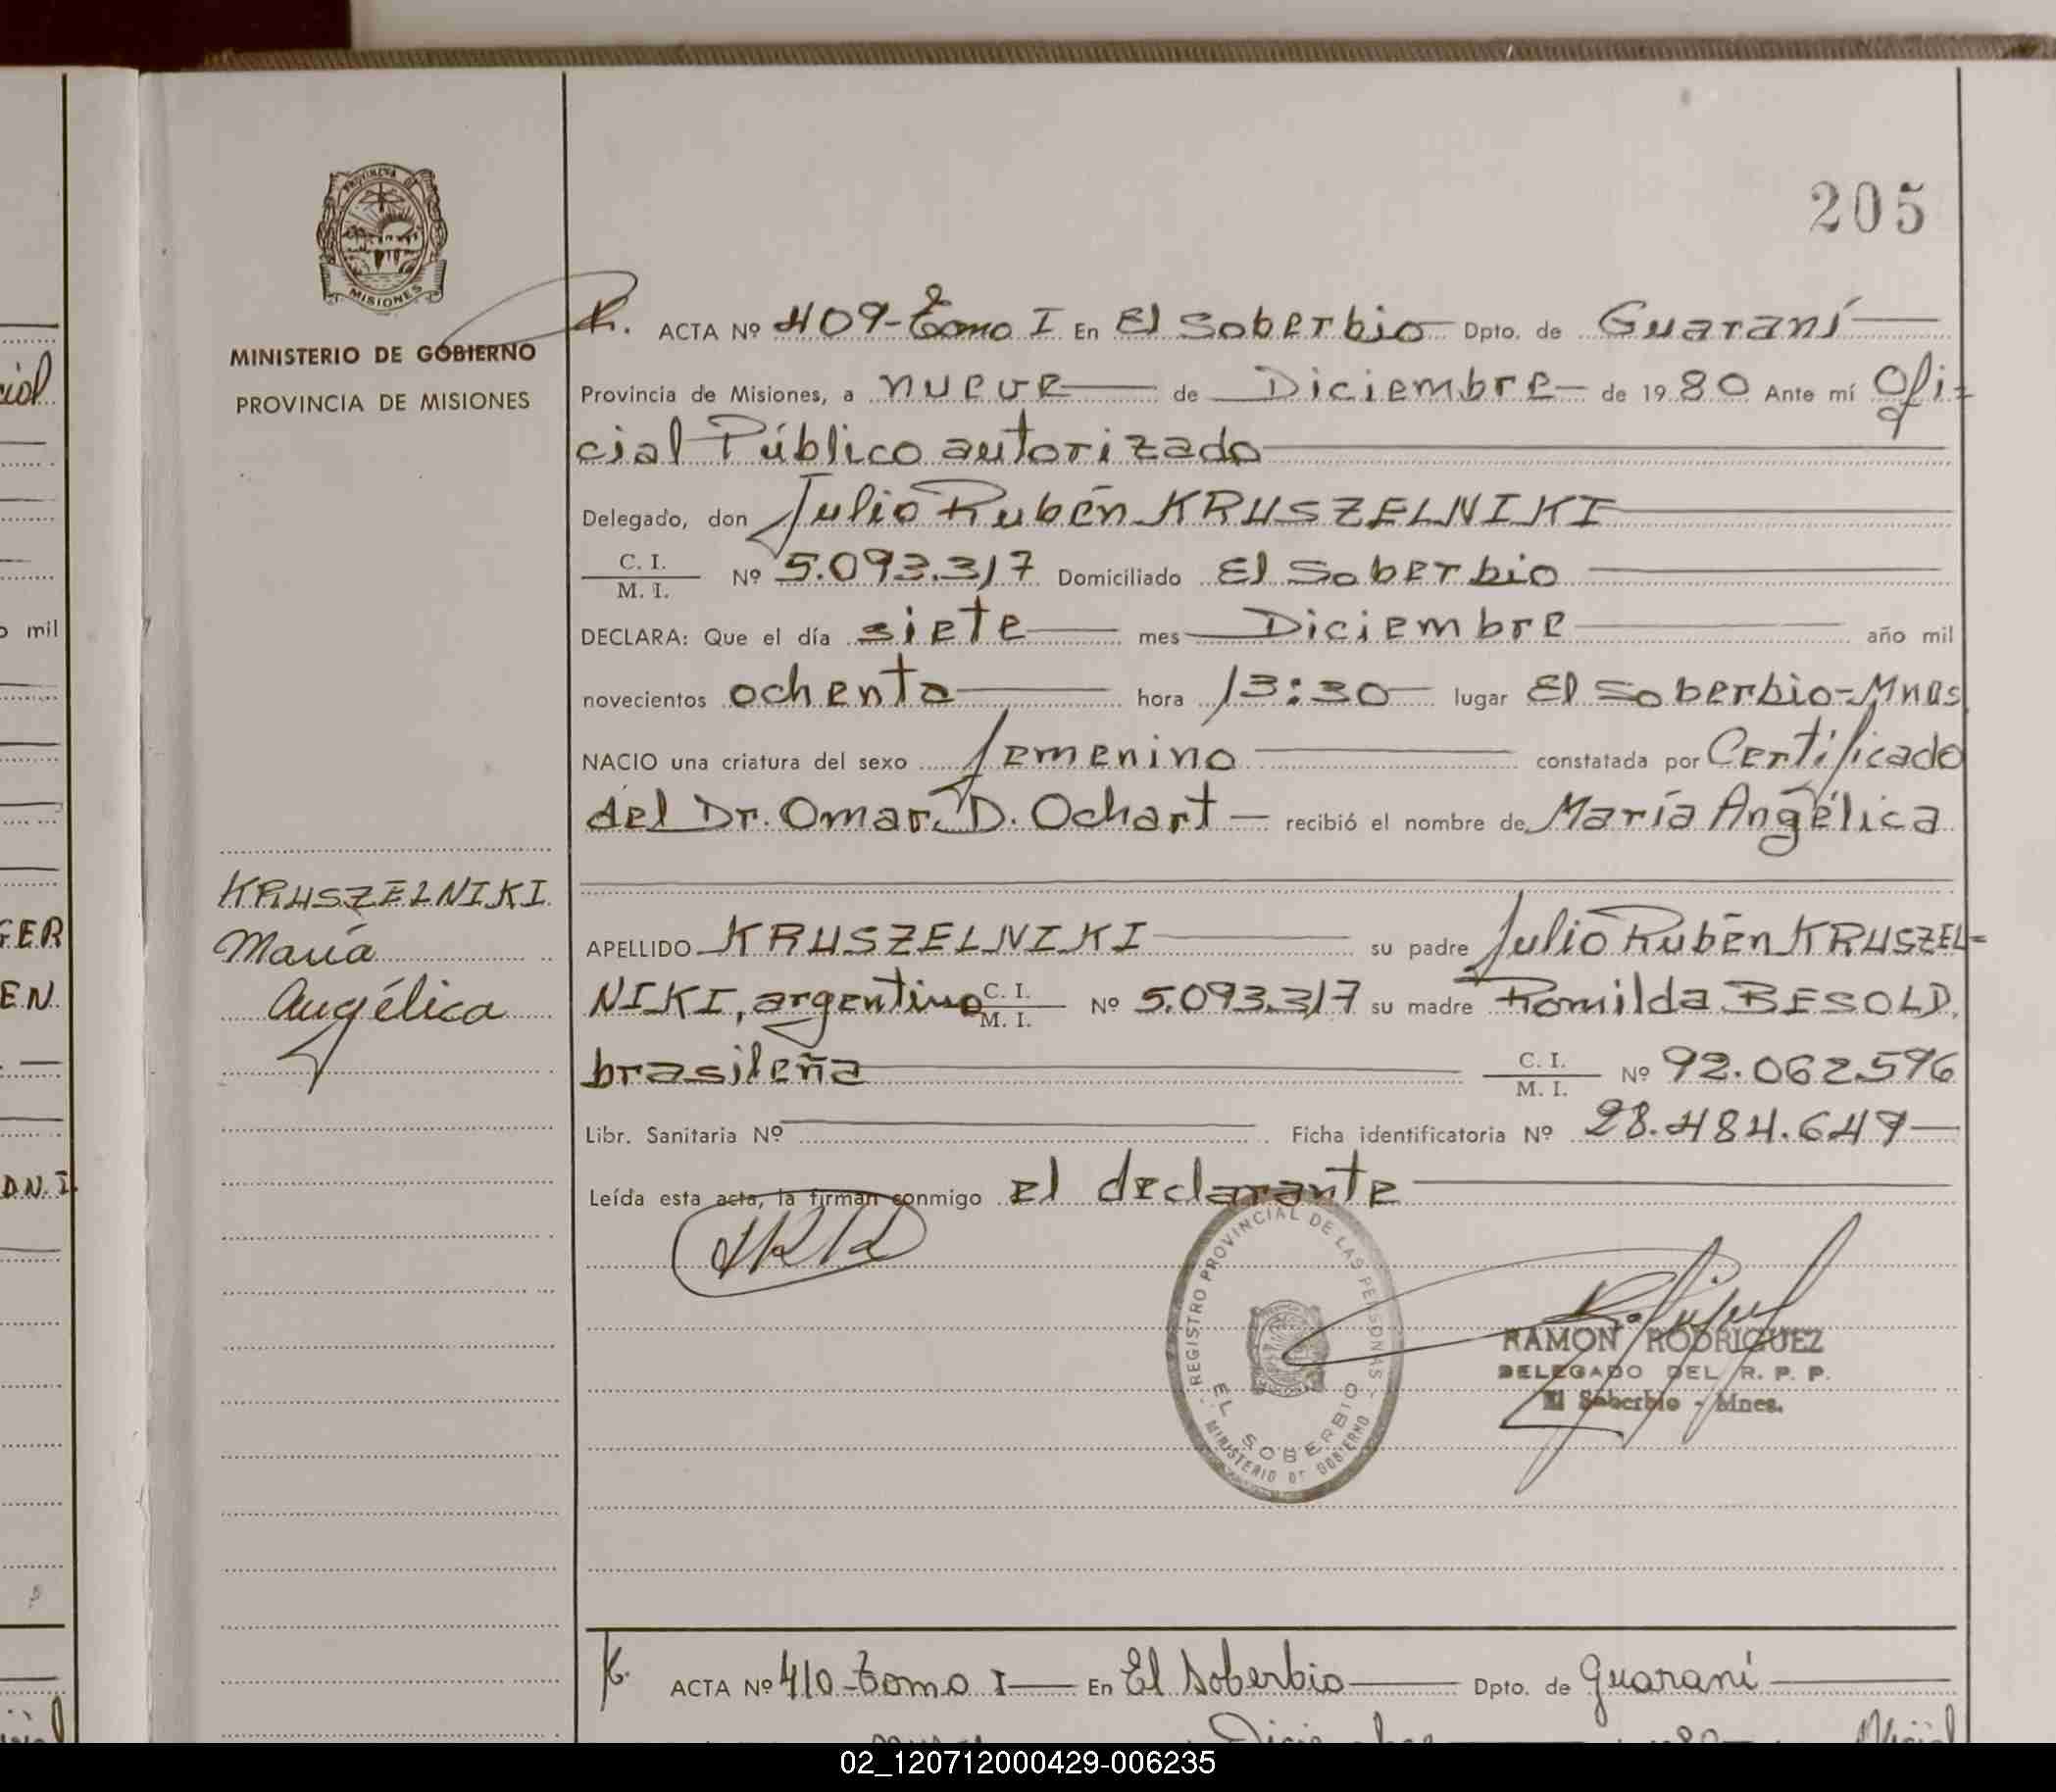 205
PROVINCIA DE
MISIONES
MINISTERIO DE GOBIERNO
PROVINCIA DE MISIONES
R. ACTA Nº 409-Tomo I En El Soberbio Dpto. de Guaraní
Provincia de Misiones, a nueve de Diciembre de 1980 Ante mí Ofi-
cial Público autorizado
Delegado, don Julio Rubén KRUSZELNIKI
C. I.
M. I. Nº 5.093.317 Domiciliado El Soberbio
DECLARA: Que el día siete mes Diciembre año mil
novecientos ochenta hora 13:30 lugar El Soberbio-Mnes
NACIO una criatura del sexo femenino constatada por Certificado
del Dr. Omar D. Ochart recibió el nombre de María Angélica
KRUSZELNIKI
María
Angélica
APELLIDO KRUSZELNIKI su padre Julio Rubén KRUSZEL-
NIKI, argentino C. I. M. I. Nº 5.093.317 su madre Romilda BESOLD,
brasileña C. I. M. I. Nº 92.062.596
Libr. Sanitaria Nº Ficha identificatoria Nº 28.484.649
Leída esta acta, la firman conmigo el declarante
REGISTRO PROVINCIAL DE LAS PERSONAS
EL SOBERBIO
MINISTERIO DE GOBIERNO
RAMON RODRIGUEZ
DELEGADO DEL R. P. P.
El Soberbio - Mnes.
ACTA Nº 410-Tomo I En El Soberbio Dpto. de Guaraní
mil
GER
EN.
DN.I
02_120712000429-006235